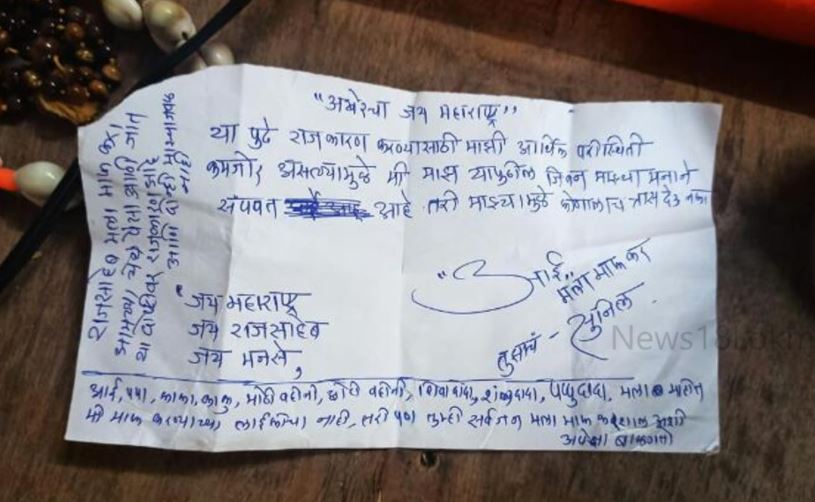 "अखेरचा जय महाराष्ट्र"
या पुढे राजकारण करण्यासाठी माझी आर्थिक परीस्थिती
कमजोर असल्यामुळे मी माझ यापुढील जिवन माझ्या मनाने
संपवत आहे तरी माझ्यामुळे कोणालाच त्रास देऊ नका
"आई" मला माफ कर
तुझाच - सुनिल
जय महाराष्ट्र
जय राजसाहेब
जय मनसे,
राजसाहेब मला माफ करा
आमच्या येथे पैसा आणि जात
या वरती राजकारण आहे
आणि ही माझ्याजवळ
नाही
आई, पपा, काका, काकु, मोठी वहीनी, छोटी वहीनी, शिवा दादा, पप्पुदादा, मला माहीत
मी माफ करण्याच्या लाईकीचा नाही, तरी पण तुम्ही सर्वजन मला माफ कराल अशी
अपेक्षा बाळगतो
News18Lokm